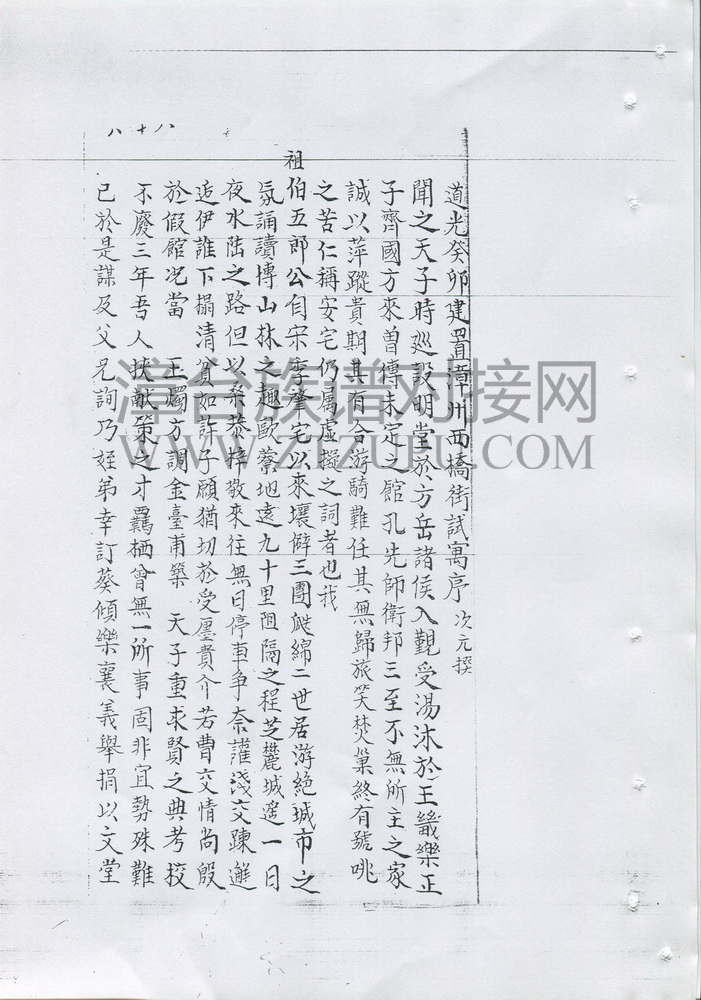 道光癸卯建置漳州西橋街試寓序 次元撰
聞之天子時巡設明堂於方岳諸侯入覲受湯沐於王畿樂正
子齊國方來曾傳未定之館孔先師衛邦三至不無所主之家
誠以萍蹤貴期其有合游騎難任其無歸旅笑焚巢終有號咷
之苦仁稱安宅仍屬虛擬之詞者也我
祖
伯五郎公自宋季肇宅以來壤僻三團瓞綿二世居游絕城市之
氛誦讀博山林之趣歐藔地遠九十里阻隔之程芝麓城遙一日
夜水陆之路但以桑恭梓敬來往無日停車争奈讙淺交踈邂
逅伊誰下搨清貧如許子願猶切於受廛貴介若曹交情尚殷
於假館况當 王燭方調金臺甫築 天子重求賢之典考校
不廢三年吾人挾献策之才羈栖曾無一所事固非宜勢殊難
已於是謀及父兄詢乃姪弟幸訂葵傾樂襄義舉捐以文堂
八十八
漳台族谱对接网
WWW.ZTZUPU.COM